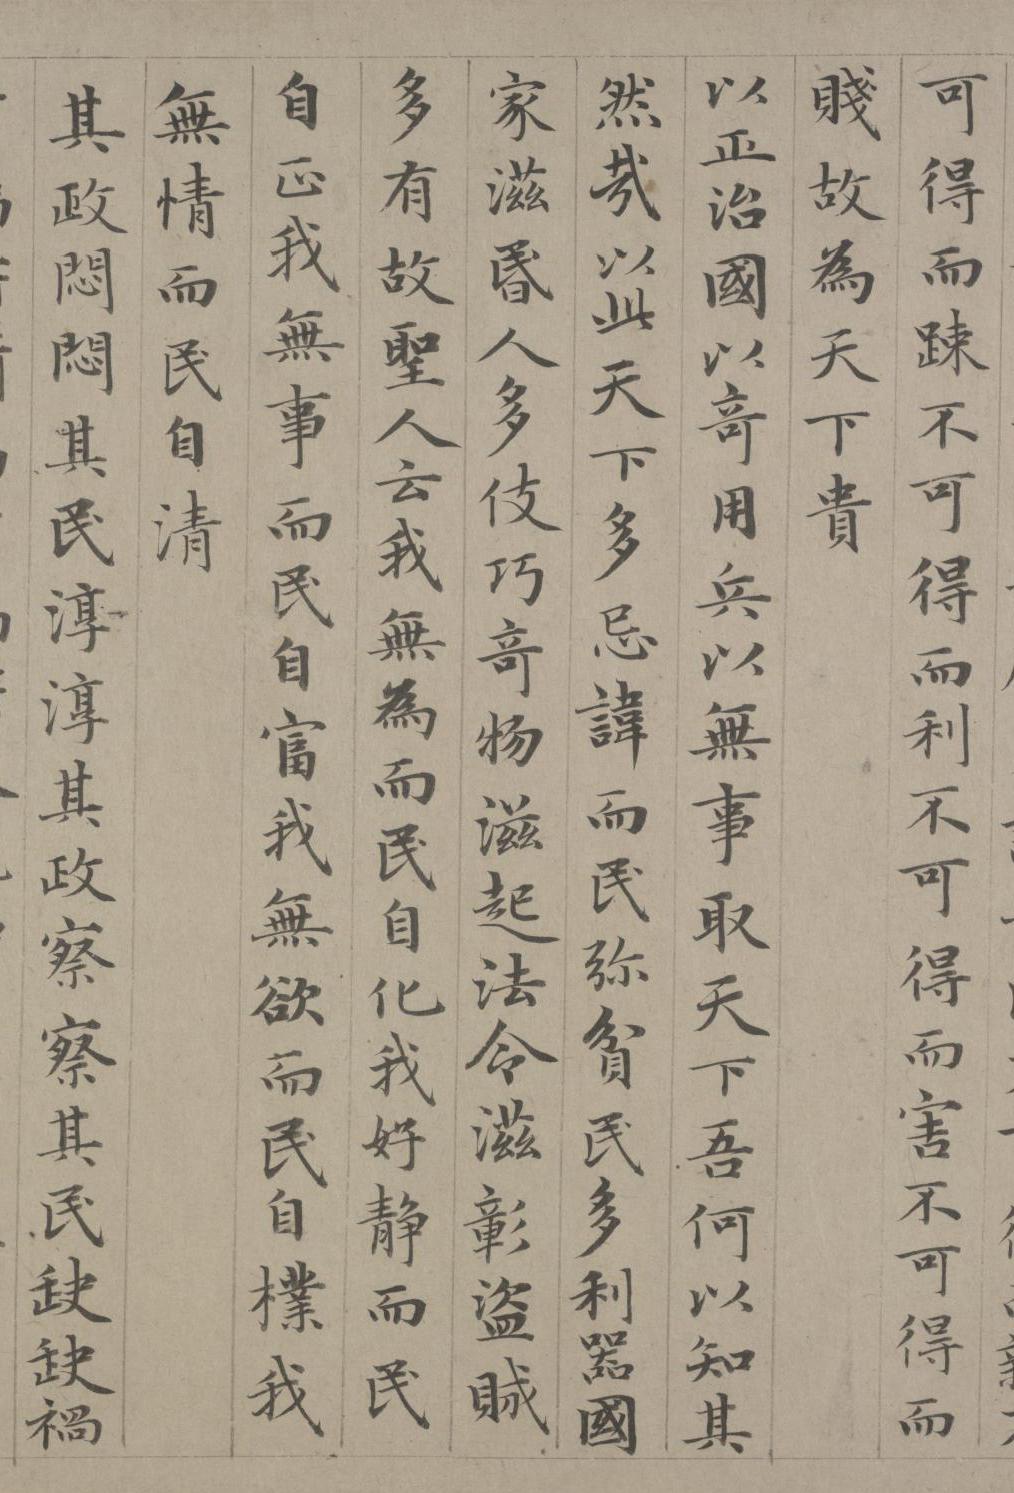 可得而踈不可得而利不可得而害不可得而
賤故為天下貴
以正治國以竒用兵以無事取天下吾何以知其
然㢤以此天下多忌諱而民弥貧民多利器國
家滋昬人多伎巧竒物滋起法令滋彰盜賊
多有故聖人云我無為而民自化我好静而民
自正我無事而民自富我無欲而民自樸我
無情而民自清
其政悶悶其民淳淳其政察察其民缺缺禍